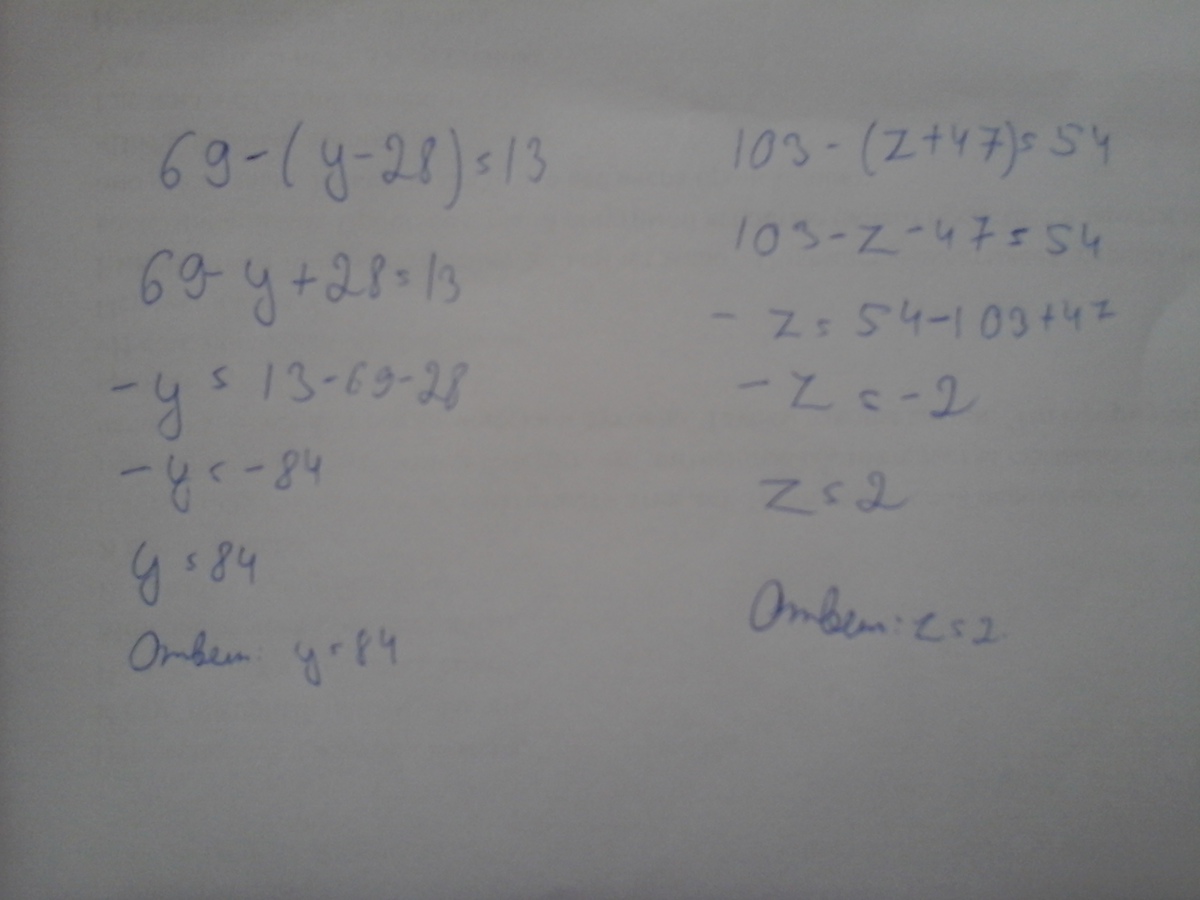 69-(y-28)=13
69-y+28=13
-y=13-69-28
-y=-84
y=84
Ответ: y=84
103-(z+47)=54
103-z-47=54
-z=54-103+47
-z=-2
z=2
Ответ: z=2